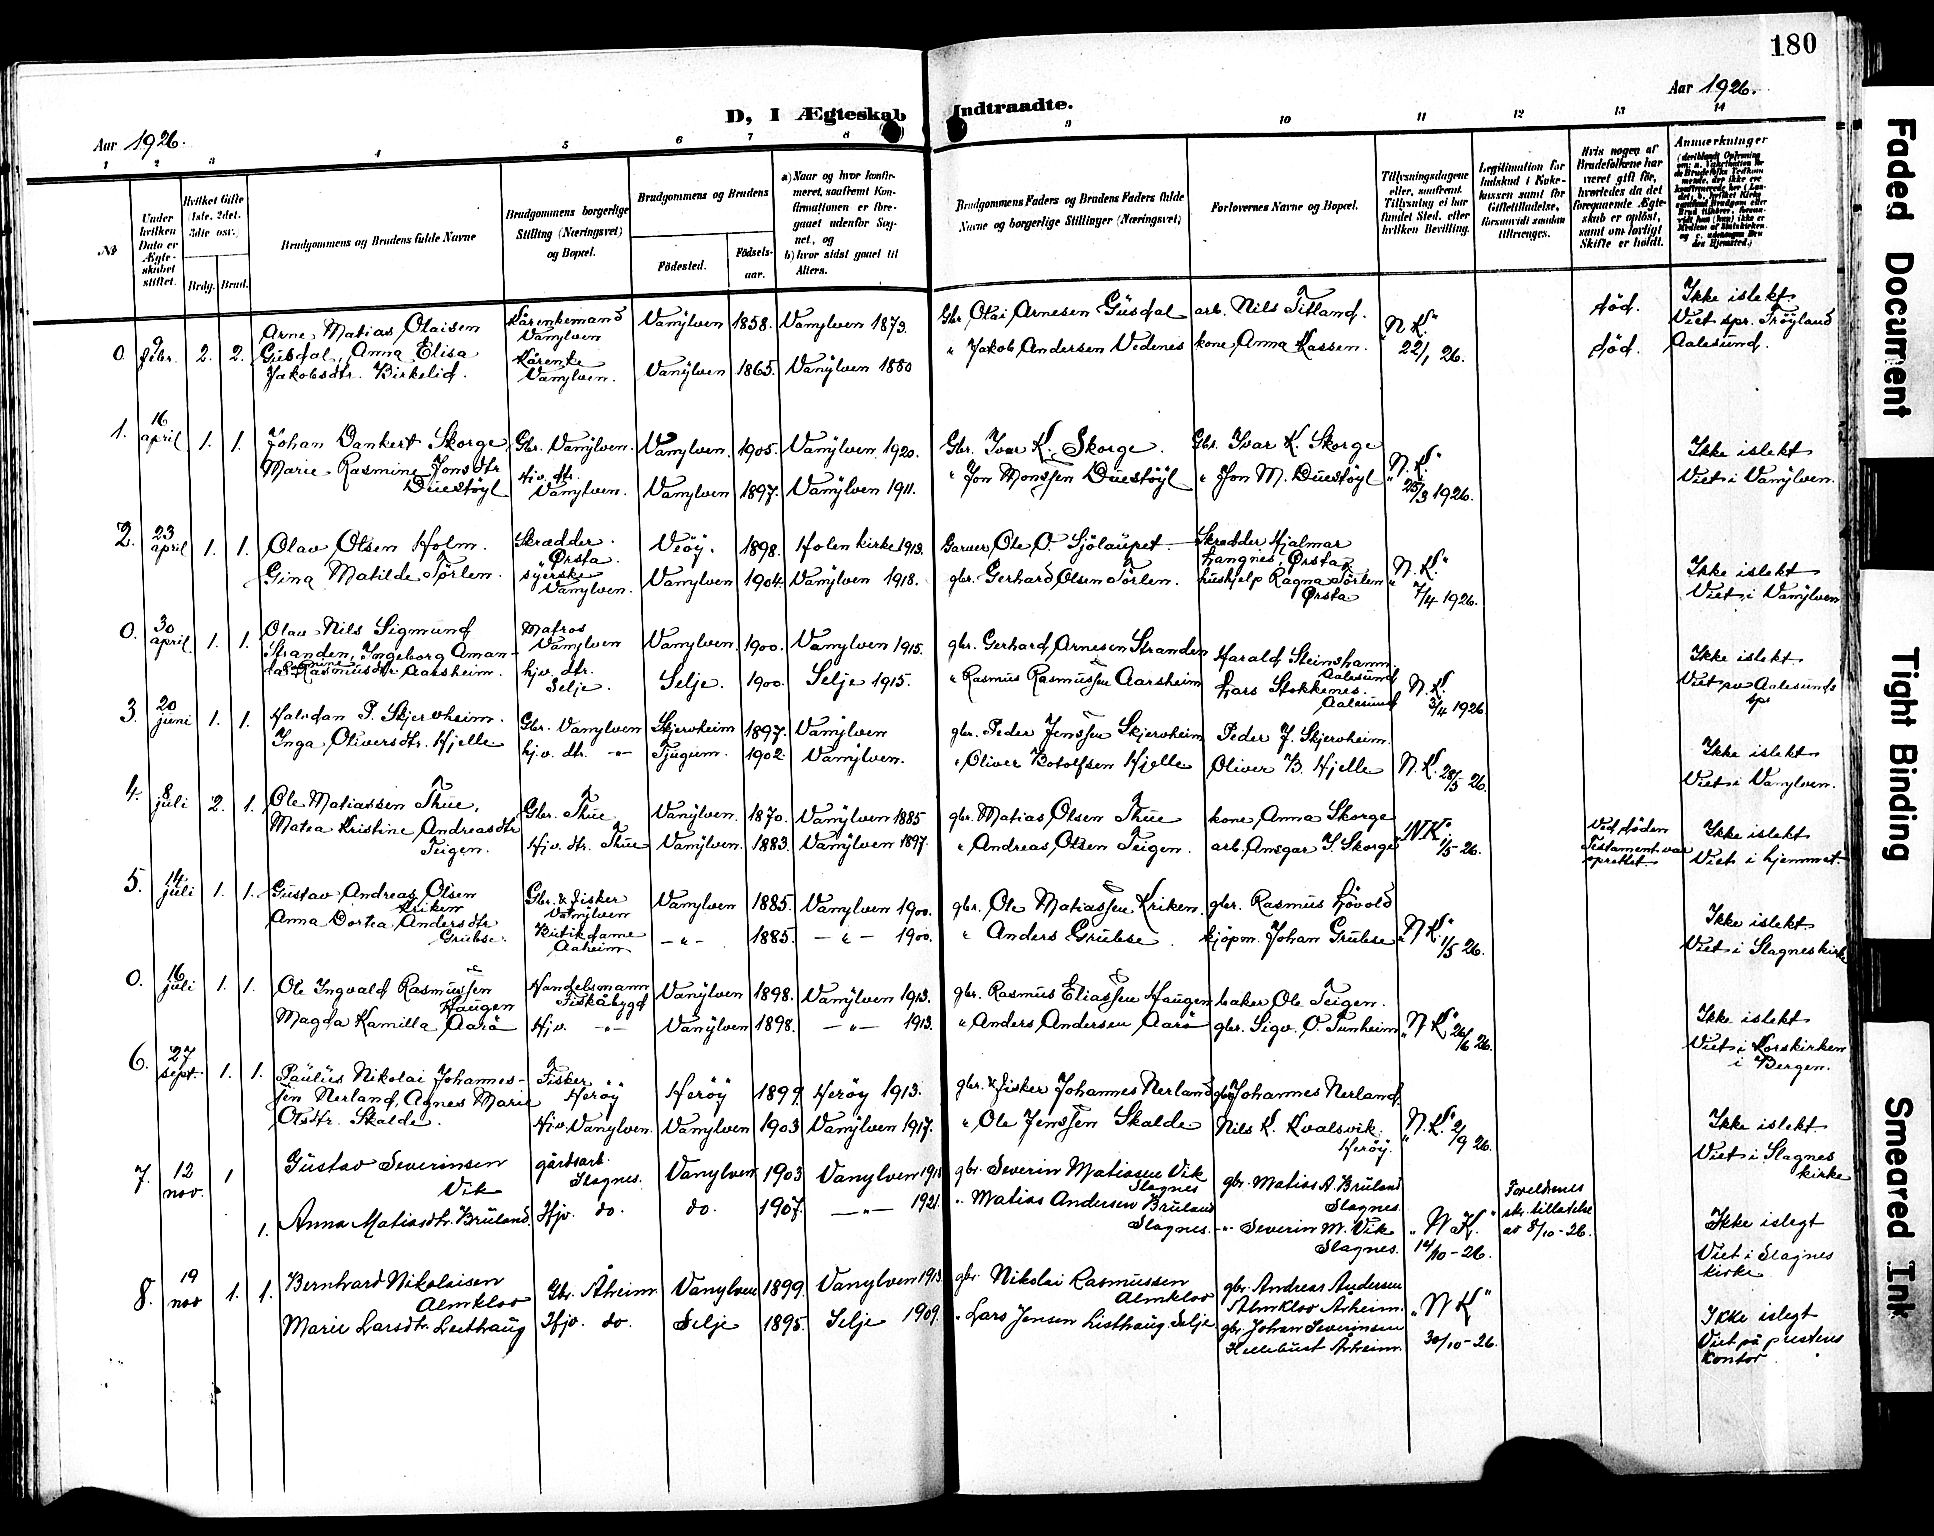 180
Aar 1926.
D, I Ægteskab
Indtraadte.
Aar 1926.
1 2 3 4 5 6 7 8
9 10 11 12 13 14
№
Under hvilken Dato er Ægteskabet stiftet.
Hvilket Gifte 1ste, 2det, 3die osv.
Brdg. Brud.
Brudgommens og Brudens fulde Navne
Brudgommens borgerlige Stilling (Næringsvei) og Bopæl.
Brudgommens og Brudens
Fødested.
Fødselsaar.
a) Naar og hvor konfirmeret, saafremt Konfirmationen er foregaaet udenfor Sognet, og
b) hvor sidst gaaet til Alters.
Brudgommens Faders og Brudens Faders fulde Navne og borgerlige Stillinger (Næringsvei)
Forlovernes Navne og Bopæl.
Tillysningsdagene eller, saafremt Tillysning ei har fundet Sted, efter hvilken Bevilling.
Legitimation for Indskud i Enkekassen samt for Giftetilladelse, forsaavidt saadan tiltrænges.
Hvis nogen af Brudefolkene har været gift før, hvorledes da det foregaaende Ægteskab er opløst, samt om lovligt Skifte er holdt.
Anmærkninger
0. 9 febr. 2. 2. Arne Matias Olaisen
Gusdal, Anna Elisa
Jakobsdtr. Birkelid.
Kårenkemand Vanylven
Kårenke Vanylven.
Vanylven 1858. Vanylven 1873.
Vanylven 1865. Vanylven 1880
Gbr. Olai Arnesen Gusdal
" Jakob Andersen Vedenes
arb. Nils Titland.
kone Anna Kassen.
"N.K." 22/1 26.
død.
død.
Ikke i slekt
Viet spr. Frøyland
Aalesund.
1. 16 april 1. 1. Johan Dankert Skorge
Marie Rasmine Jonsdtr
Duestøyl
Gbr. Vanylven.
Hjv. dtr. Vanylven.
Vanylven. 1905. Vanylven 1920.
Vanylven 1897. Vanylven 1911.
Gbr. Ivar K. Skorge.
" Jon Monssen Duestøyl
Gbr. Ivar K. Skorge
" Jon M. Duestøyl
"N.K." 25/3 1926.
Ikke i slekt
Viet i Vanylven.
2. 23 april 1. 1. Olav Olsen Holm.
Gina Matilde Tørlen.
Skrædder. Ørsta.
syerske Vanylven.
Veøy. 1898. Holen kirke 1913.
Vanylven 1904. Vanylven 1918.
Garver Ole O. Sjölaupet.
gbr. Gerhard Olsen Tørlen.
Skrædder Hjalmar
Langnes, Ørsta
hushjelp Ragna Tørlen
Ørsta
"N.K." 7/4 1926.
Ikke i slekt
Viet i Vanylven
0. 30 april 1. 1. Olav Nils Sigmund
Stranden, Ingeborg Aman-
da Rasmusdtr Aarsheim.
Matros Vanylven
hjv. dtr. Selje.
Vanylven 1900. Vanylven 1915.
Selje. 1900. Selje 1915.
gbr. Gerhard Arnesen Stranden
" Rasmus Rasmussen Aarsheim
Harald Steinshamn.
Aalesund
Lars Stokkenes.
Aalesund
N.K. 3/4 1926.
Ikke i slekt
Viet av Aalesunds
spr
3. 20 juni 1. 1. Halvdan P. Skjervheim.
Inga Oliversdtr. Hjelle
Gbr. Vanylven
hj. v. dtr. -"-
Skjervheim 1897. Vanylven
Tjugum. 1902 Vanylven.
gbr. Peder Jenssen Skjervheim
" Oliver Botolfsen Hjelle
Peder J. Skjervheim.
Oliver B. Hjelle
N.K. 28/5 26.
Ikke i slekt
Viet i Vanylven.
4. 8 juli 2. 1. Ole Matiassen Thue.
Matea Kristine Andreasdtr
Teigen.
Gbr. Thue
Hjv. dtr. Thue
Vanylven. 1870. Vanylven 1885
Vanylven. 1883. Vanylven 1897.
gbr. Matias Olsen Thue
" Andreas Olsen Teigen.
kone Anna Skorge
arb. Ansgar I. Skorge
"NK" 1/5-26.
Ved døden
Testament var
oprettet
Ikke i slekt
Viet i hjemmet.
5. 14. juli 1. 1. Gustav Andreas Olsen
Kriken
Anna Dortea Andersdtr
Grubse.
Gbr. & fisker
Vanylven
Butikdame
Aaheim
Vanylven 1885. Vanylven 1900.
-"- 1885. -"- 1900.
gbr. Ole Matiassen Kriken.
" Anders Grubse.
gbr. Rasmus Løvold
kjøpm. Johan Grubse
"N.K." 1/5 26.
Ikke i slekt
Viet i Slagneskirke
0. 16 juli 1. 1. Ole Ingvald Rasmussen
Haugen
Magda Kamilla Aarø
Handelsmann
Fiskåbygd
Hjv. -"-
Vanylven 1898. Vanylven 1913.
Vanylven 1898. -"- 1913.
gbr. Rasmus Eliassen Haugen
" Anders Andersen Aarø
baker Ole Teigen.
gbr. Sigv. O. Tunheim
"N.K." 26/6 26.
Ikke i slekt
Viet i Korskirken
i Bergen.
6. 27 sept. 1. 1. Paulus Nikolai Johannes-
sen Nerland, Agnes Marie
Olsdtr. Skalde.
Fisker Herøy
Hjv. Vanylven.
Herøy 1899 Herøy 1913.
Vanylven 1903 Vanylven 1917.
gbr. & fisker Johannes Nerland
" Ole Jenssen Skalde
gbr Johannes Nerland.
Nils K. Kvalsvik.
Herøy.
"N.K." 2/9 26.
Ikke i slekt.
Viet i Slagnes
kirke
7. 12 nov. 1 Gustav Severinsen
Vik
1. Anna Matiasdtr. Bruland.
gårdsarb. Slagnes.
Hjv. do.
Vanylven 1903 Vanylven 1918
do. 1907. -"- 1921.
gbr. Severin Matiasen Vik
Slagnes
" Matias Andersen Bruland
Slagnes.
gbr. Matias A. Bruland
Slagnes.
-"- Severin M. Vik
Slagnes.
"N.K." 14/10-26.
Foreldrenes
skr. tilladelse
av 8/10-26.
Ikke i slegt
Viet i Slagnes
kirke
8. 19 nov 1. 1. Bernhard Nikolaisen
Almklov
Marie Larsdtr. Leethaug
Gbr. Åheim
Hjv. do.
Vanylven 1899. Vanylven 1913.
Selje 1895. Selje 1909.
gbr. Nikolai Rasmussen
Almklov
" Lars Jensen Listhaug Selje
gbr. Andreas Andersen
Almklov Åheim.
gbr. Johan Severinsen
Hellebust Åheim.
"N.K." 30/10-26.
Ikke i slegt
Viet på prestens
kontor.
Faded Document
Tight Binding
Smeared Ink